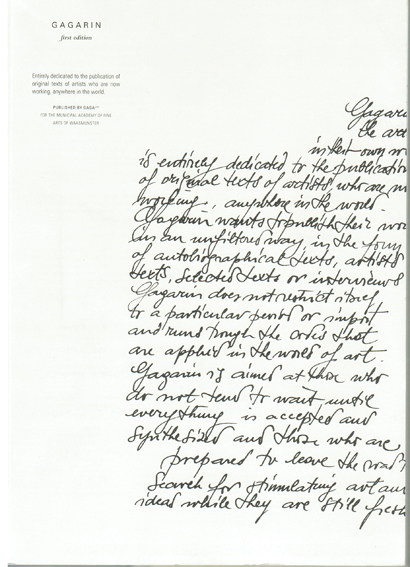 GAGARIN
first edition
Entirely dedicated to the publication of
original texts of artists who are now
working, anywhere in the world.
PUBLISHED BY GAGA
FOR THE MUNICIPAL ACADEMY OF FINE
ARTS OF WAASMUNSTER
Gagarin
the
in their own
is entirely dedicated to the publication
of original texts of artists, who are
working, anywhere in the world.
Gagarin wants to publish their
in an unfiltered way, in the form
of autobiographical texts, artists
texts, selected texts or interviews
Gagarin does not restrict itself
to a particular period or
and runs trough the codes that
are applied in the world of art.
Gagarin is aimed at those who
do not tend to wait until
everything is accepted and
synthesized and those who are
prepared to leave the road
search for stimulating art
ideas while they are still fresh